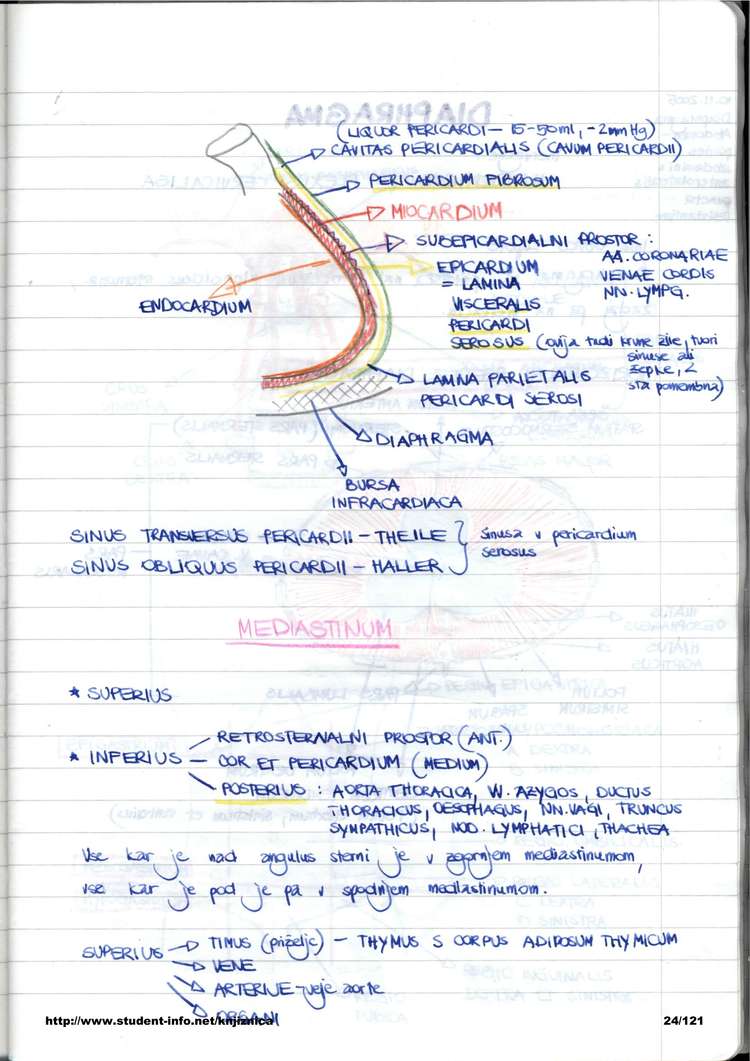 (LIQUOR PERICARDI – 15-50ml, -2mmHg)
CAVITAS PERICARDIALIS (CAVUM PERICARDII)
PERICARDIUM FIBROSUM
MIOCARDIUM
SUBEPICARDIALNI PROSTOR :
AA. CORONARIAE
VENAE CORDIS
NN. LYMPG.
EPICARDIUM
= LAMINA
VISCERALIS
PERICARDI
SEROSUS (ovija tudi krvne žile, tvori
sinuse ali
žepke, 2
sta pomembna)
ENDOCARDIUM
LAMINA PARIETALIS
PERICARDI SEROSI
DIAPHRAGMA
BURSA
INFRACARDIACA
SINUS TRANSVERSUS PERICARDII – THEILE
SINUS OBLIQUUS PERICARDII – HALLER
sinusa v pericardium
serosus
MEDIASTINUM
* SUPERIUS
* INFERIUS
RETROSTERNALNI PROSTOR (ANT.)
COR ET PERICARDIUM (MEDIUM)
POSTERIUS : AORTA THORACICA, VV. AZYGOS, DUCTUS
THORACICUS, OESOPHAGUS, NN. VAGI, TRUNCUS
SYMPATHICUS, NOD. LYMPHATICI, THACHEA
Vse kar je nad angulus sterni, je v zgornjem mediastinumom,
vse kar je pod je pa v spodnjem mediastinumom.
SUPERIUS
TIMUS (priželjc) – THYMUS S CORPUS ADIPOSUM THYMICUM
VENE
ARTERIJE – veje aorte
ORGANI
http://www.student-info.net/knjiznica
24/121